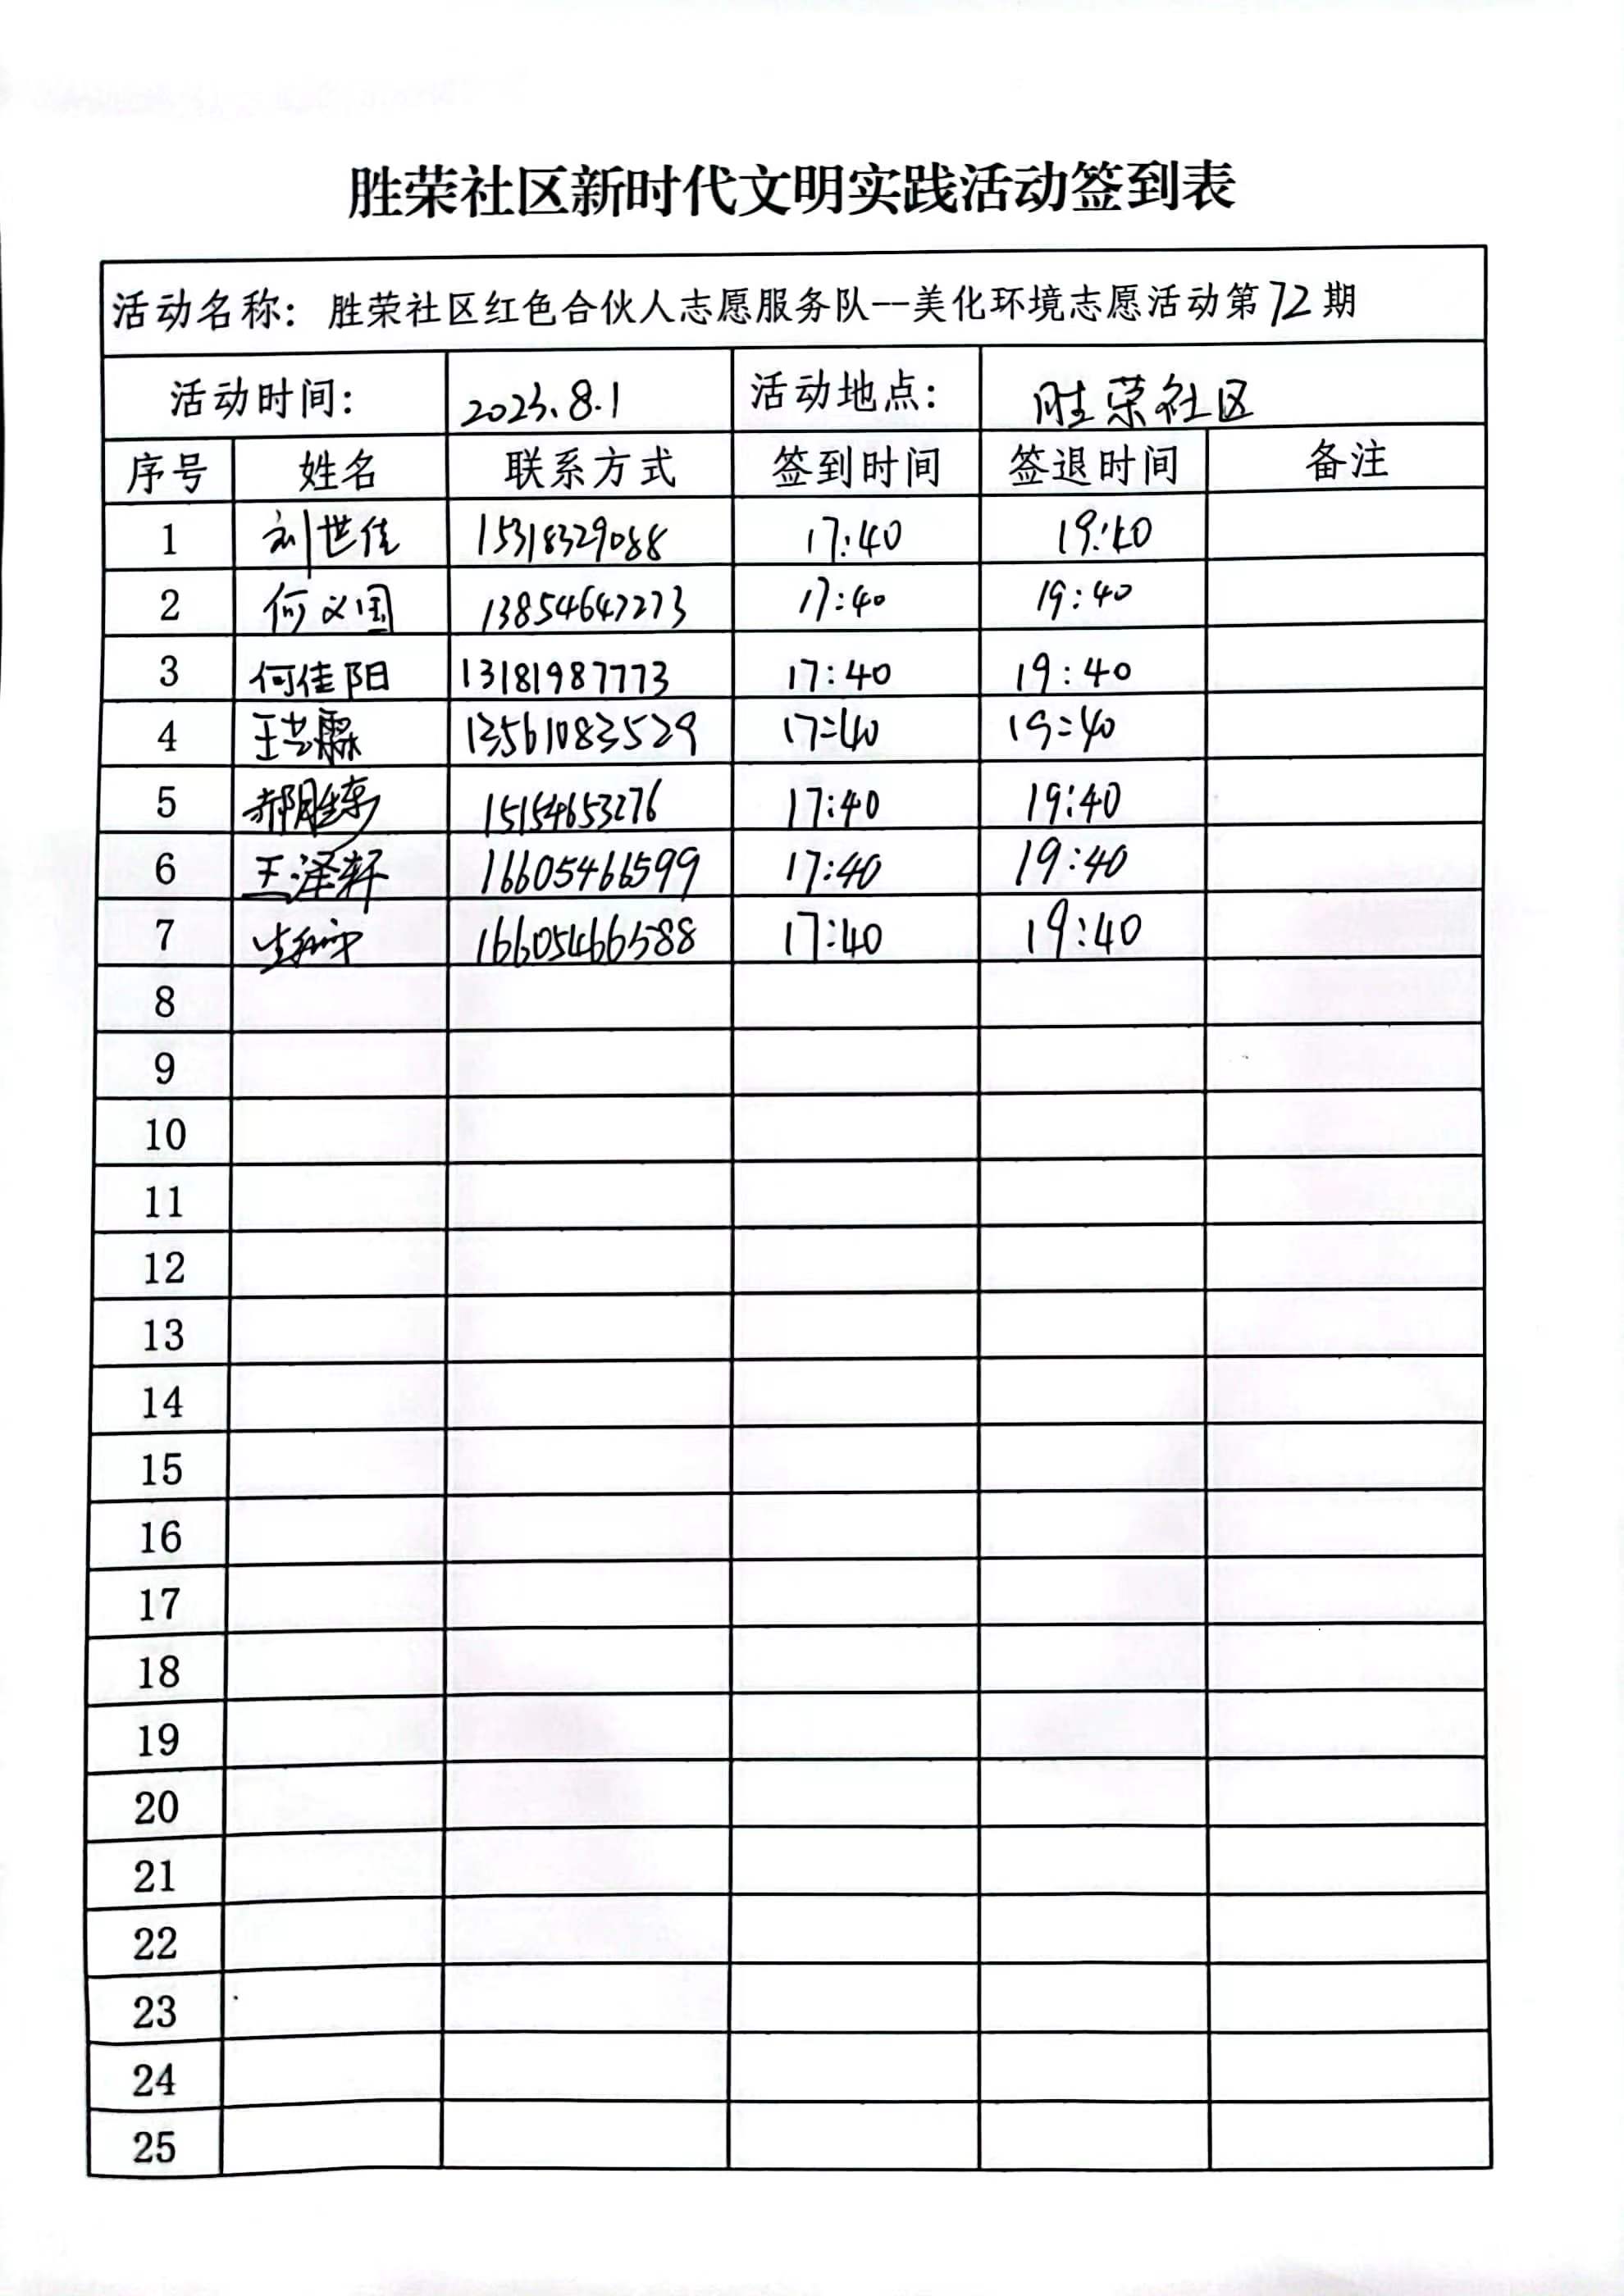 胜荣社区新时代文明实践活动签到表
活动名称：胜荣社区红色合伙人志愿服务队--美化环境志愿活动第72期
活动时间： 2023.8.1 活动地点： 胜荣社区
序号 姓名 联系方式 签到时间 签退时间 备注
1 刘世佳 15318329088 17:40 19:40
2 何义国 13854647273 17:40 19:40
3 何佳阳 13181987773 17:40 19:40
4 王芸霖 13561083529 17:40 19:40
5 郝胜 15154653276 17:40 19:40
6 王泽轩 16605466599 17:40 19:40
7 16605466588 17:40 19:40
8
9
10
11
12
13
14
15
16
17
18
19
20
21
22
23
24
25